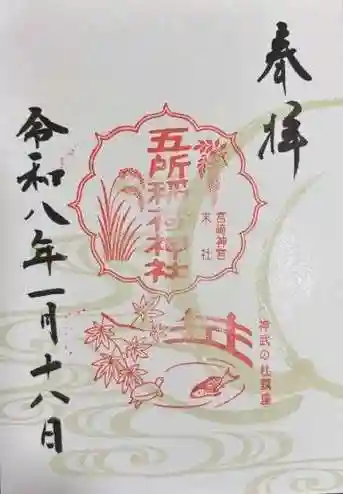 奉拝
五所稲荷神社
宮崎神宮
末社
神武の杜鎮座
令和八年一月十八日